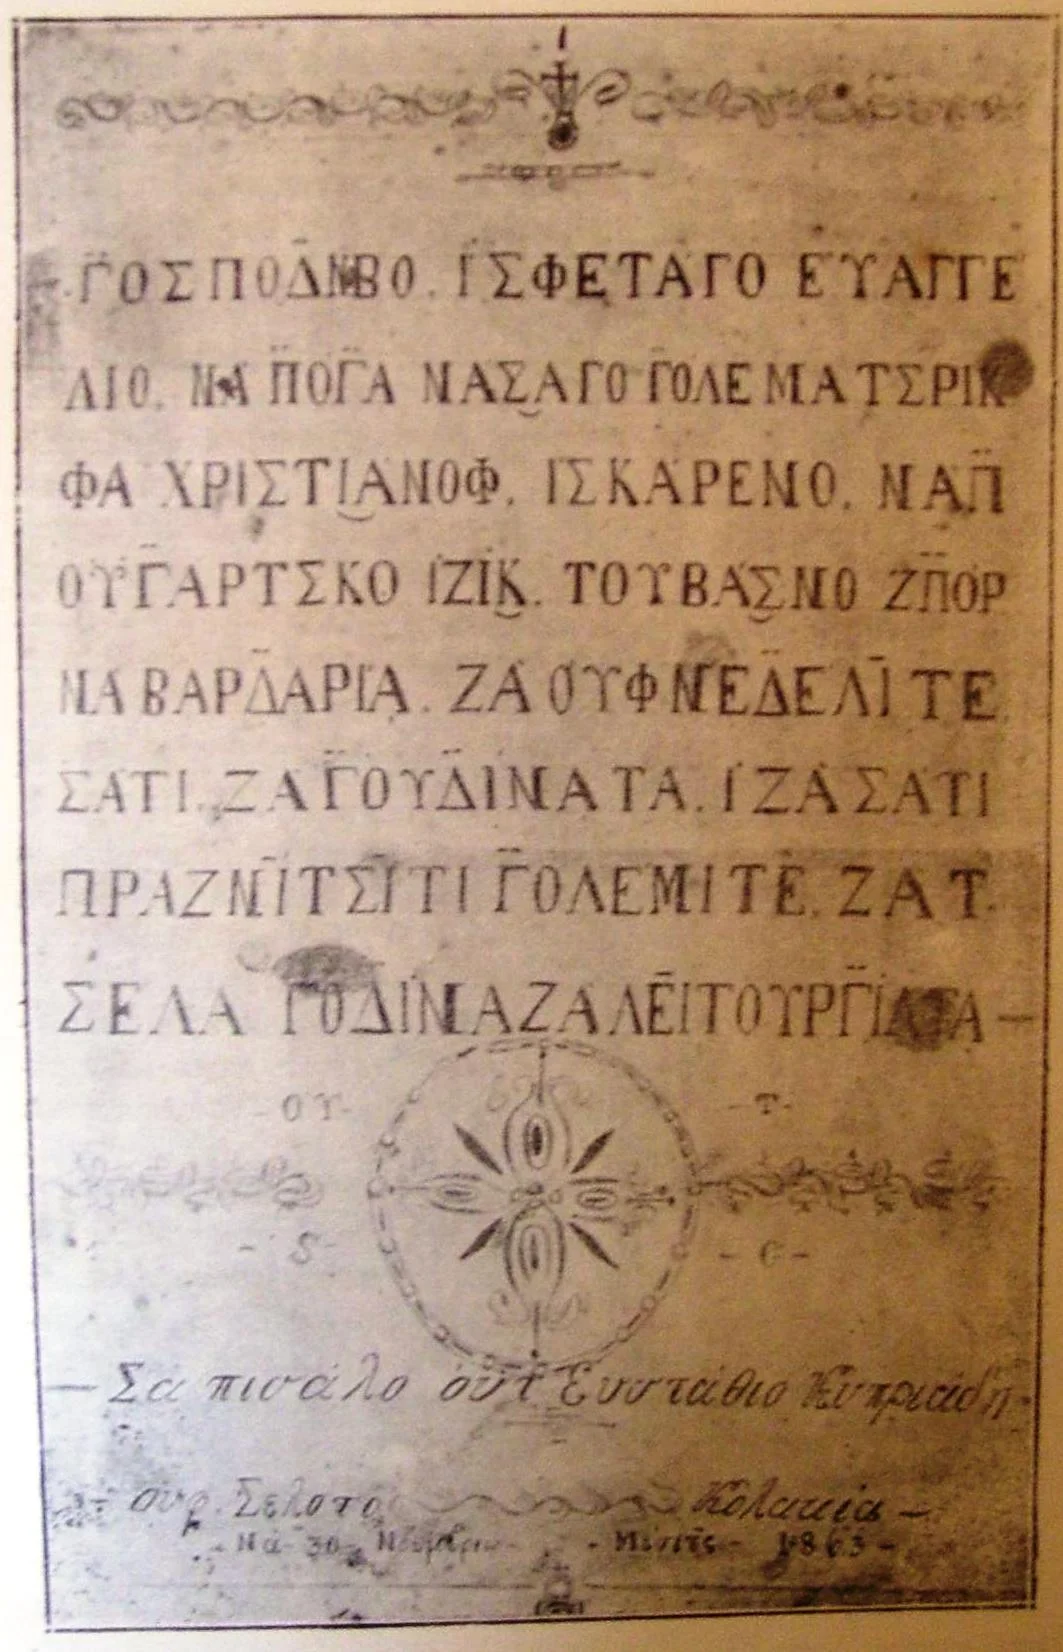 Γ̈ΟΣΠΟΔ̄ΝΒΟ. Ι ΣΦΕΤΑΓΟ ΕΥΑΓΓΕ
ΛΙΟ. ΝΑ Π̈ΟΓ̈Α ΝΑΣ̮ΑΓΟ Γ̈ΟΛΕΜΑ ΤΣΡΙΚ
ΦΑ ΧΡΙΣΤΙ̮ΑΝΟΦ. ΙΣΚΑΡΕΝΟ. ΝΑΠ̈
ΟΥΓ̈ΑΡΤΣΚΟ ΙΖΙΚ̮. ΤΟΥΒΑΣ̮ΝΟ ΖΠ̈ΟΡ
ΝΑ ΒΑΡΔ̄ΑΡΙΑ. ΖΑ ΟΥΦ ΝΕΔ̄ΕΛΙ ΤΕ
ΣΑΤΙ. ΖΑ Γ̈ΟΥΔ̈ΙΝΑΤΑ. Ι ΖΑ ΣΑΤΙ
ΠΡΑΖΝΙΤΣΙΤΙ Γ̈ΟΛΕΜΙΤΕ. ΖΑΤ
ΣΕΛΑ Γ̈ΟΔΙΝΑ ΖΑ ΛΕΙΤΟΥΡΓ̈ΙΑΤΑ —
- ΟΥ - - Τ -
- S - - C -
— Σα πισάλο ούτ Ευστάθιο Κυπριάδη
ουρ Σελοτο Κολακία —
- Να 30 - Νοέμβριο - - Μέσετς - 1863 -